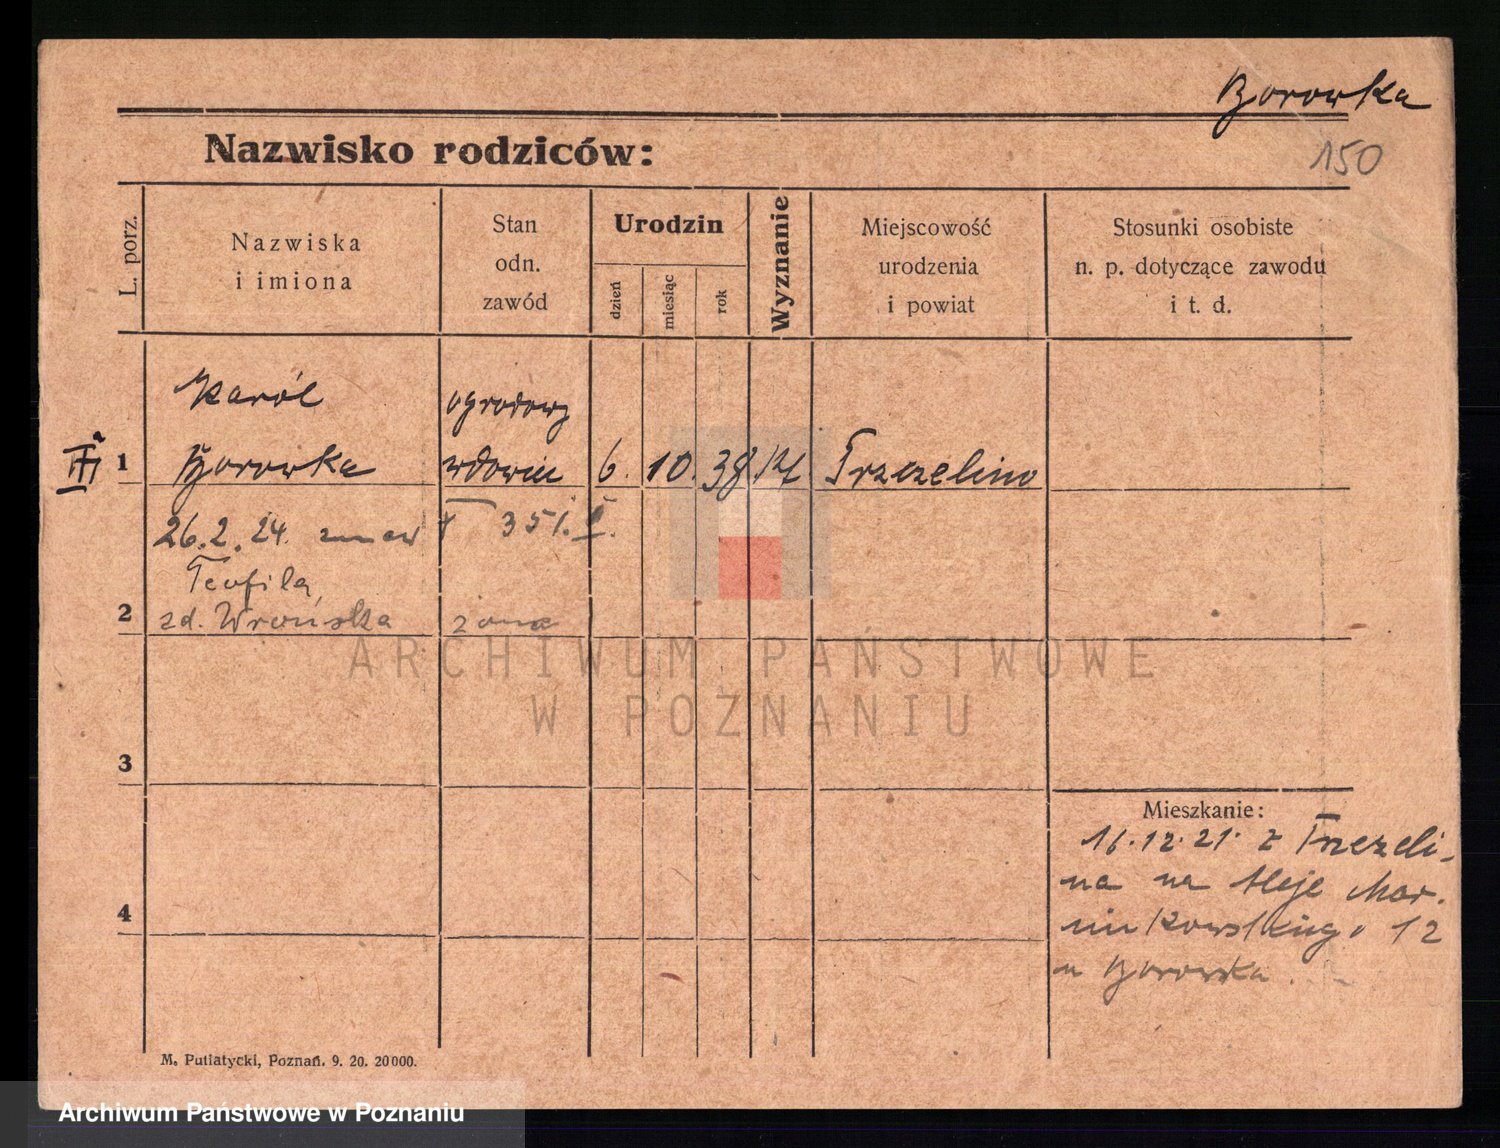 Borowka
150
Nazwisko rodziców:
L. porz.
Nazwiska
i imiona
Stan
odn.
zawód
Urodzin
dzień
miesiąc
rok
Wyznanie
Miejscowość
urodzenia
i powiat
Stosunki osobiste
n. p. dotyczące zawodu
i t. d.
Karól
ogrodowy
III a 1 Borowka wdowiec 6. 10. 38 kt Trzczelino
26.2.24. zmarł
Teofila
2 zd. Wrońska żona
ARCHIWUM PAŃSTWOWE
W POZNANIU
3
Mieszkanie:
16.12.21. z Trzczeli-
na na Aleje Mar-
4
cinkowskiego 12
u Borowska
M. Putiatycki, Poznań. 9. 20. 20000.
Archiwum Państwowe w Poznaniu